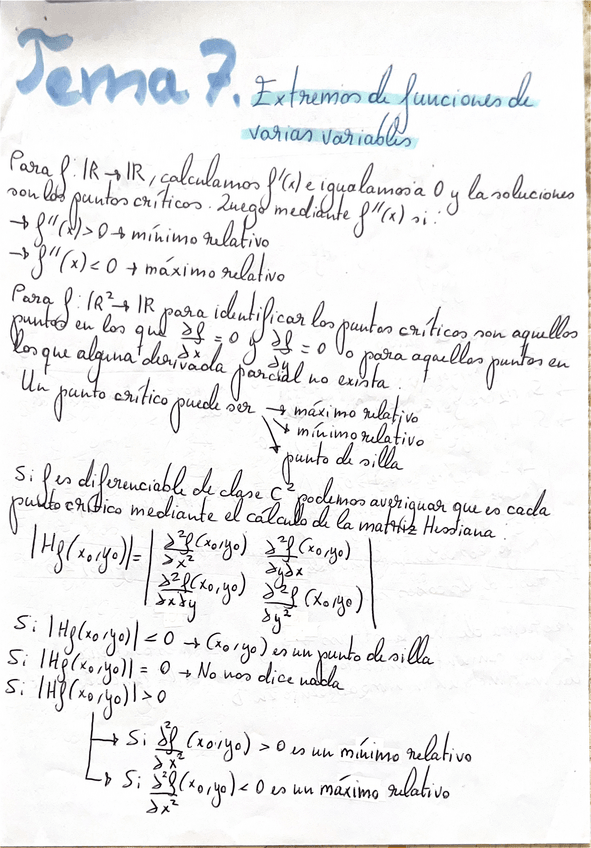 Tema 7. Extremos de funciones de
varias variables
Para f: IR → IR, calculamos f'(x) e igualamos a 0 y la soluciones
son los puntos críticos. Luego mediante f''(x) si:
→ f''(x) > 0 → mínimo relativo
→ f''(x) < 0 → máximo relativo
Para f: IR² → IR para identificar los puntos críticos son aquellos
puntos en los que ∂f/∂x = 0 y ∂f/∂y = 0 o para aquellos puntos en
los que alguna derivada parcial no exista.
Un punto crítico puede ser → máximo relativo
→ mínimo relativo
→ punto de silla
Si f es diferenciable de clase C² podemos averiguar que es cada
punto crítico mediante el cálculo de la matriz Hessiana.
|Hf(x₀,y₀)| = | ∂²f/∂x² (x₀,y₀) ∂²f/∂y∂x (x₀,y₀) |
| ∂²f/∂x∂y (x₀,y₀) ∂²f/∂y² (x₀,y₀) |
Si |Hf(x₀,y₀)| < 0 → (x₀,y₀) es un punto de silla
Si |Hf(x₀,y₀)| = 0 → No nos dice nada
Si |Hf(x₀,y₀)| > 0
→ Si ∂²f/∂x² (x₀,y₀) > 0 es un mínimo relativo
→ Si ∂²f/∂x² (x₀,y₀) < 0 es un máximo relativo